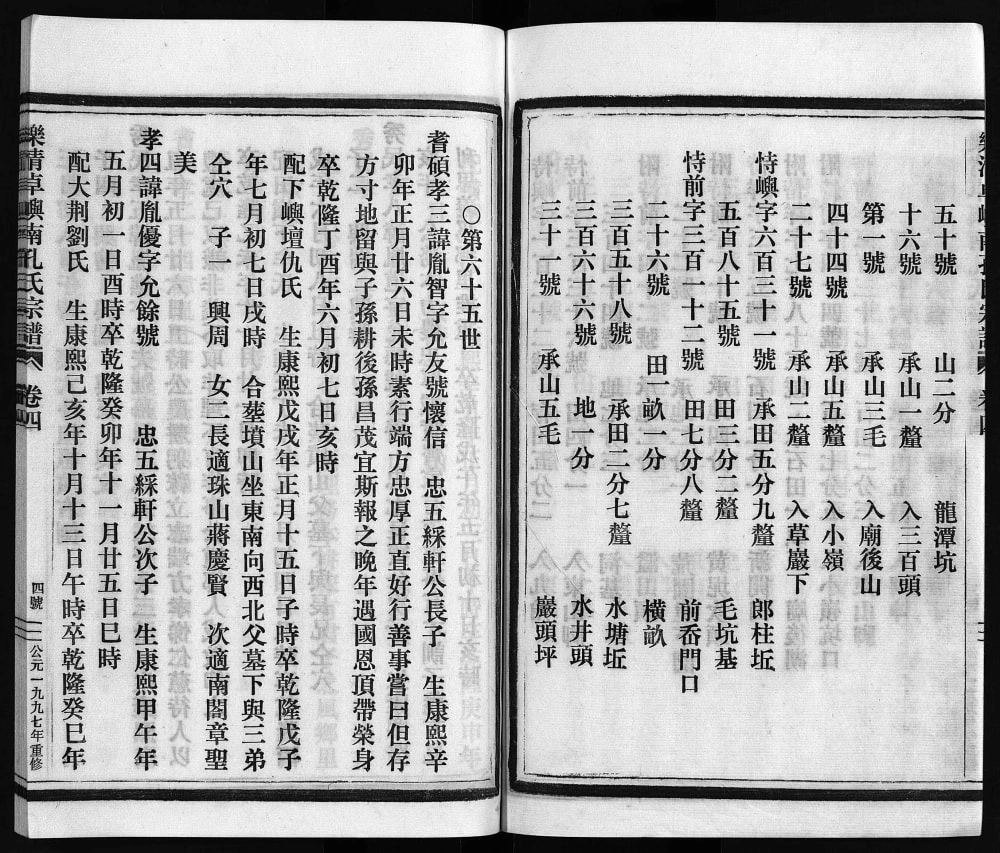 五十號　山二分　龍潭坑
十六號　承山一釐　入三百頭
第一號　承山三毛　入廟後山
四十四號　承山五釐　入小嶺
二十七號　承山二釐　入草巖下
恃嶼字六百三十一號　承田五分九釐　郎柱坵
五百八十五號　田三分二釐　毛坑基
恃前字三百一十二號　田七分八釐　前岙門口
二十六號　田一畝一分　橫畝
三百五十八號　承田二分七釐　水塘坵
三百六十六號　地一分　水井頭
三十一號　承山五毛　巖頭坪
○第六十五世
耆碩孝三諱胤智字允友號懷信　忠五綵軒公長子　生康熙辛
卯年正月廿六日未時素行端方忠厚正直好行善事嘗曰但存
方寸地留與子孫耕後孫昌茂宜斯報之晚年遇國恩頂帶榮身
卒乾隆丁酉年六月初七日亥時
配下嶼壇仇氏　生康熙戊戌年正月十五日子時卒乾隆戊子
年七月初七日戌時　合塟墳山坐東南向西北父墓下與三弟
仝穴　子一　興周　女二長適珠山蔣慶賢　次適南閣章聖
美
孝四諱胤優字允餘號　忠五綵軒公次子　生康熙甲午年
五月初一日酉時卒乾隆癸卯年十一月廿五日巳時
配大荆劉氏　生康熙己亥年十月十三日午時卒乾隆癸巳年
樂清卓嶼南孔氏宗譜　卷四　四號　公元一九九七年重修